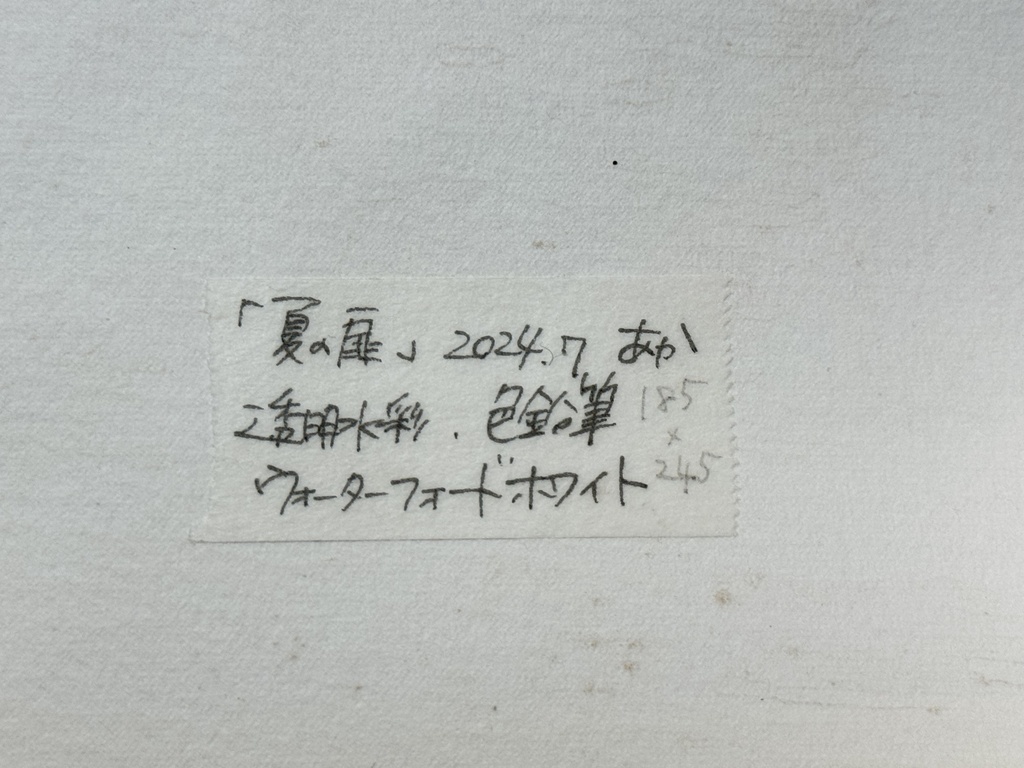 「夏の扉」 2024.7 あか
透明水彩．色鉛筆 185
×
ウォーターフォードホワイト 245